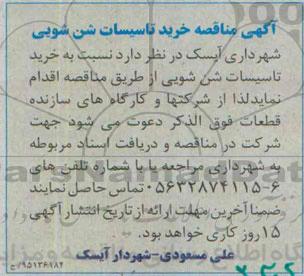 آگهی مناقصه خرید تاسیسات شن شویی
شهرداری آیسک در نظر دارد نسبت به خرید
تاسیسات شن شویی از طریق مناقصه اقدام
نمایدلذا از شرکتها و کارگاه های سازنده
قطعات فوق الذکر دعوت می شود جهت
شرکت در مناقصه و دریافت اسناد مربوطه
به شهرداری مراجعه یا با شماره تلفن های
۶-۰۵۶۳۲۸۷۴۱۱۵ تماس حاصل نمایند
ضمنا آخرین مهلت ارائه از تاریخ انتشار آگهی
۱۵روز کاری خواهد بود.
علی مسعودی-شهردار آیسک
۹۵۱۳۶۹۸۴/ج